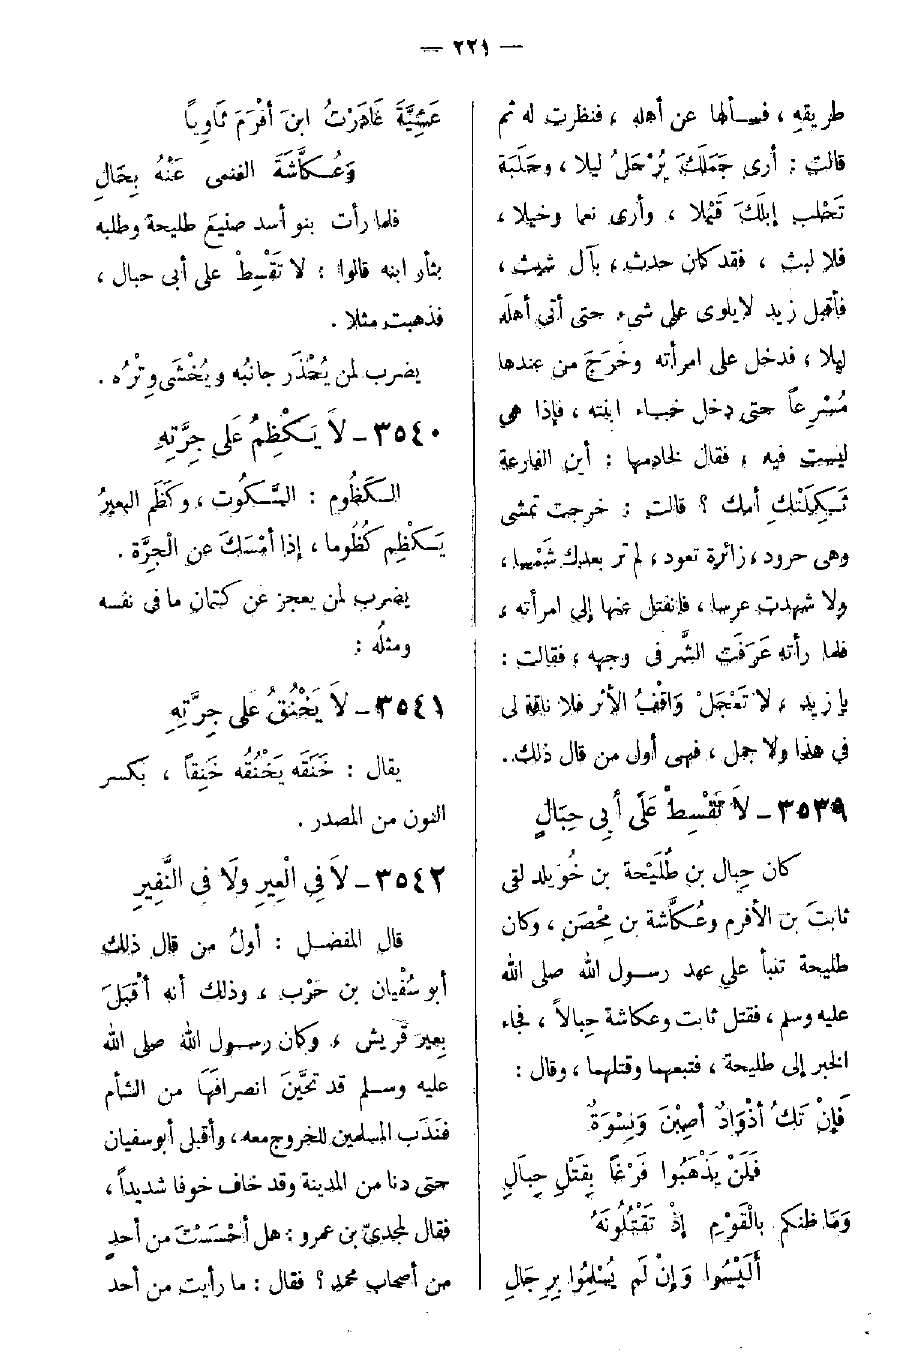 — ٢٢١ —
طريقه ، فسألها عن أهله ، فنظرت له ثم
قالت : أرى جَمَلَكَ يُرْحَلُ ليلا ، وحَلَبَة
تَحْلب إبلَكَ قَيْلا ، وأرى نعما وخيلا ،
فلا لبث ، فقد كان حدث ، بآل شيث ،
فأقبل زيد لايلوى على شىء حتى أتى أهلَه
ليلا ، فدخل على امرأته وخَرَجَ من عندها
مُسْرِعاً حتى دخل خباء ابنته ، فإذا هى
ليست فيه ، فقال لخادمها : أين الفارعة
ثَكِلَتْكِ أمك ؟ قالت : خرجت تمشى
وهى حرود ، زائرة تعود ، لم تر بعدك شَمْسا ،
ولا شهدت عرسا ، فانفتل عنها إلى امرأته ،
فلما رأته عَرَفَت الشَّر فى وجهه ، فقالت :
يا زيد ، لا تَعْجَلْ وَاقْفُ الأثر فلا ناقة لى
فى هذا ولا جمل ، فهى أول من قال ذلك .
٣٥٣٩ - لاَ تَقْسِطْ عَلَى أبِى حِبَالٍ
كان حِبال بن طُلَيْحة بن خُوَيلد لقى
ثابتَ بن الأفرم وعُكَّاشة بن مِحْصَن ، وكان
طليحة تنبأ على عهد رسول الله صلى الله
عليه وسلم ، فقتل ثابت وعكاشة حِبالاً ، فجاء
الخبر إلى طليحة ، فتبعهما وقتلهما ، وقال :
فَإِنْ تَكُ أذْوَادٌ أصِبْنَ وَنِسْوَةٌ
فَلَنْ يَذْهَبُوا فَرْغاً بِقَتْلِ حِبَالِ
وَمَا ظنكم بِالْقَوْمِ إذْ تَقْتُلُونَهُ
أَلَيْسُوا وَإنْ لَم يُسْلِمُوا بِرِجَالِ
عَشِيَّةَ غَادَرْتُ ابنَ أفْرَمَ ثَاوِياً
وَعُكَّاشَةَ الغنمى عَنْهُ بِحَالِ
فلما رأت بنو أسد صنيعَ طليحة وطلبه
بثأر ابنه قالوا : لا تَقْسِطْ على أبى حبال ،
فذهبت مثلا .
يضرب لمن يُحْذَر جانبُه ويُخْشَى وِتْرُه .
٣٥٤٠ - لاَ يَكْظِمُ عَلَى جِرَّتِهِ
الكُظُوم : السُّكُوت ، وكَظَم البعيرُ
يَكْظِم كُظُوما ، إذا أمْسَكَ عن الْجِرَّة .
يضرب لمن يعجز عن كتمان ما فى نفسه
ومثلُه :
٣٥٤١ - لاَ يَخْنُقُ عَلَى جِرَّتِهِ
يقال : خَنَقَه يَخْنُقُه خَنِقاً ، بكسر
النون من المصدر .
٣٥٤٢ - لاَ فِى الْعِيرِ ولَا فِى النَّفِيرِ
قال المفضل : أولُ من قال ذلك
أبو سُفْيان بن حَرْب ، وذلك أنه أقْبَلَ
بعِير قُرَيش ، وكان رسول الله صلى الله
عليه وسلم قد تحَيَّنَ انصرافَهَا من الشأم
فنَدَب المسلمين للخروج معه ، وأقبل أبو سفيان
حتى دنا من المدينة وقد خاف خوفا شديداً ،
فقال لمجدىّ بن عمرو : هل أحْسَسْتَ من أحدٍ
من أصحاب محمد ؟ فقال : ما رأيت من أحد